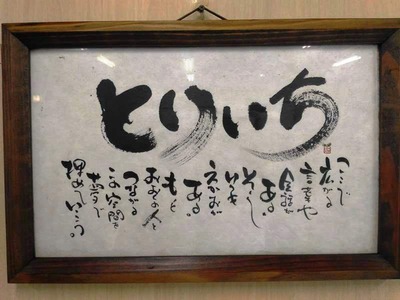 とりいち
ここで
広がる
言葉や
会話が
ある。
そして
いつも
えがおが
ある。
もっと
おおくの人と
つながる
この空間を
夢で
埋めていこう。